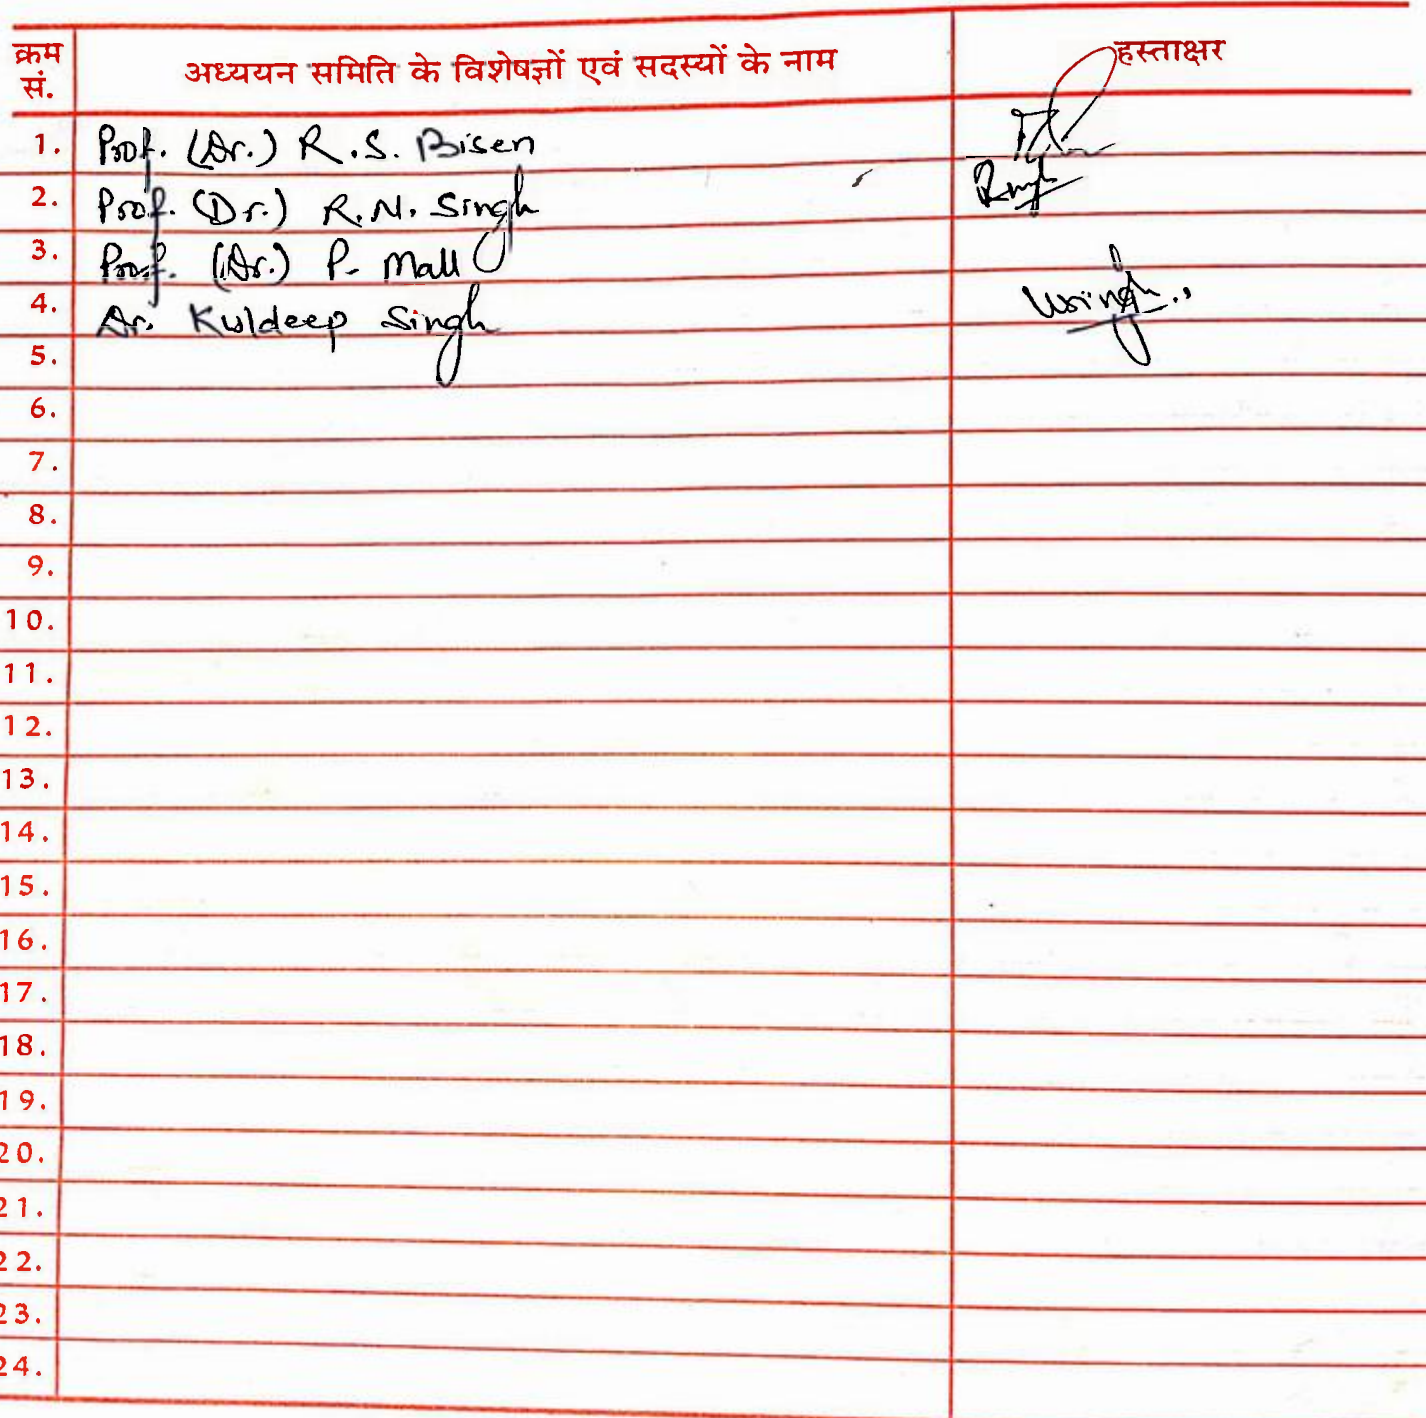 क्रम सं. अध्ययन समिति के विशेषज्ञों एवं सदस्यों के नाम हस्ताक्षर
1. Prof. (Dr.) R.S. Bisen
2. Prof. (Dr.) R.N. Singh
3. Prof. (Dr.) P. Mall
4. Dr. Kuldeep Singh
5.
6.
7.
8.
9.
10.
11.
12.
13.
14.
15.
16.
17.
18.
19.
20.
21.
22.
23.
24.